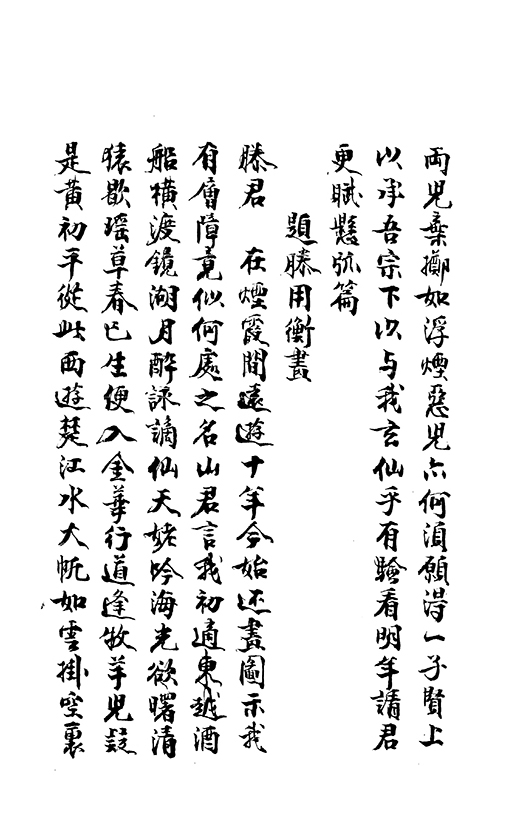 両児棄擲如浮煙惡児亦何須願得一子賢上
以承吾宗下以与我玄仙乎有驗看明年請君
更賦懸弧篇
題勝用衡畫
勝君 在煙霞間遠遊十年今始还畫圖示我
有層障竟似何處之名山君言我初適東越酒
船橫渡鏡湖月醉詠謫仙天姥吟海光欲曙清
猿歇瑶草春已生便入金華行道逢牧羊児疑
是黄初平從此西遊楚江水大帆如雲掛空裏